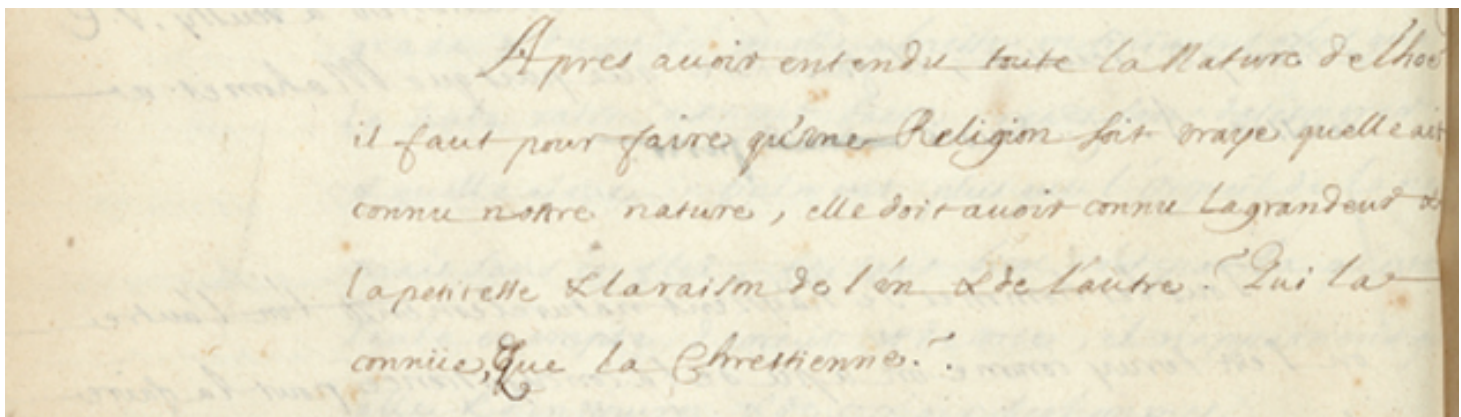 Apres auoir entendu toute la Nature de lhoe
il faut pour faire qu'vne Religion soit vraye quelle ait
connu nostre nature, elle doit auoir connu la grandeur &
la petitesse & la raison de l'vn & de l'autre. Qui la
connüe, Que la Chrestienne.?